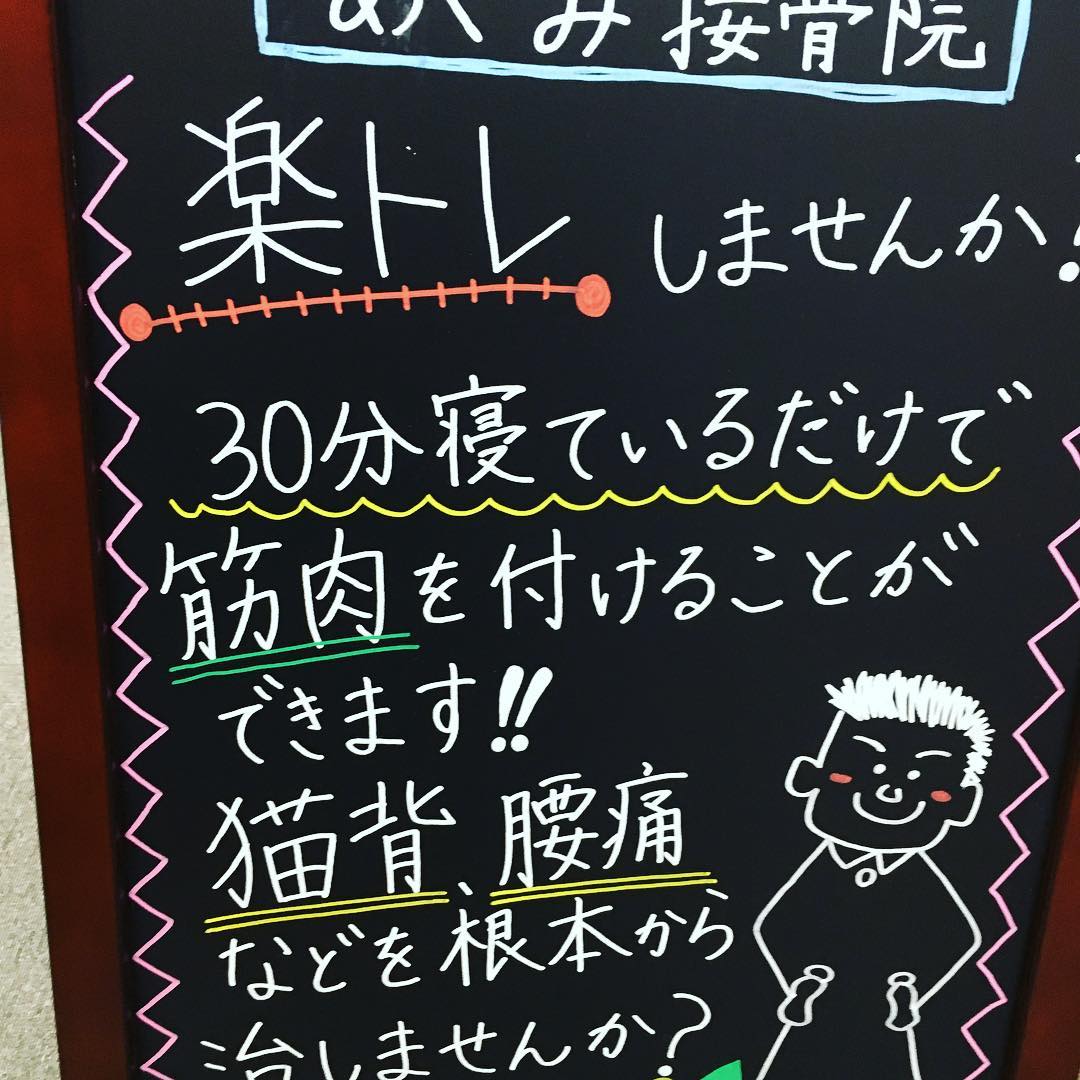 めぐみ接骨院
楽トレ しませんか?
30分寝ているだけで
筋肉を付けることが
できます!!
猫背、腰痛
などを根本から
治しませんか?